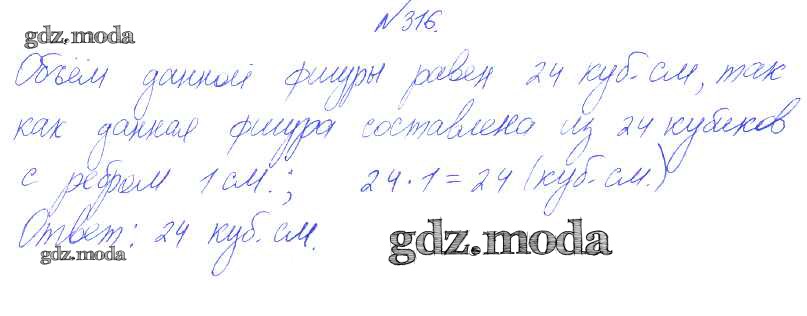 №316.
gdz.moda
Объём данной фигуры равен 24 куб. см, так
как данная фигура составлена из 24 кубиков
с ребром 1 см.; 24·1=24 (куб. см.)
Ответ: 24 куб. см.
gdz.moda
gdz.moda